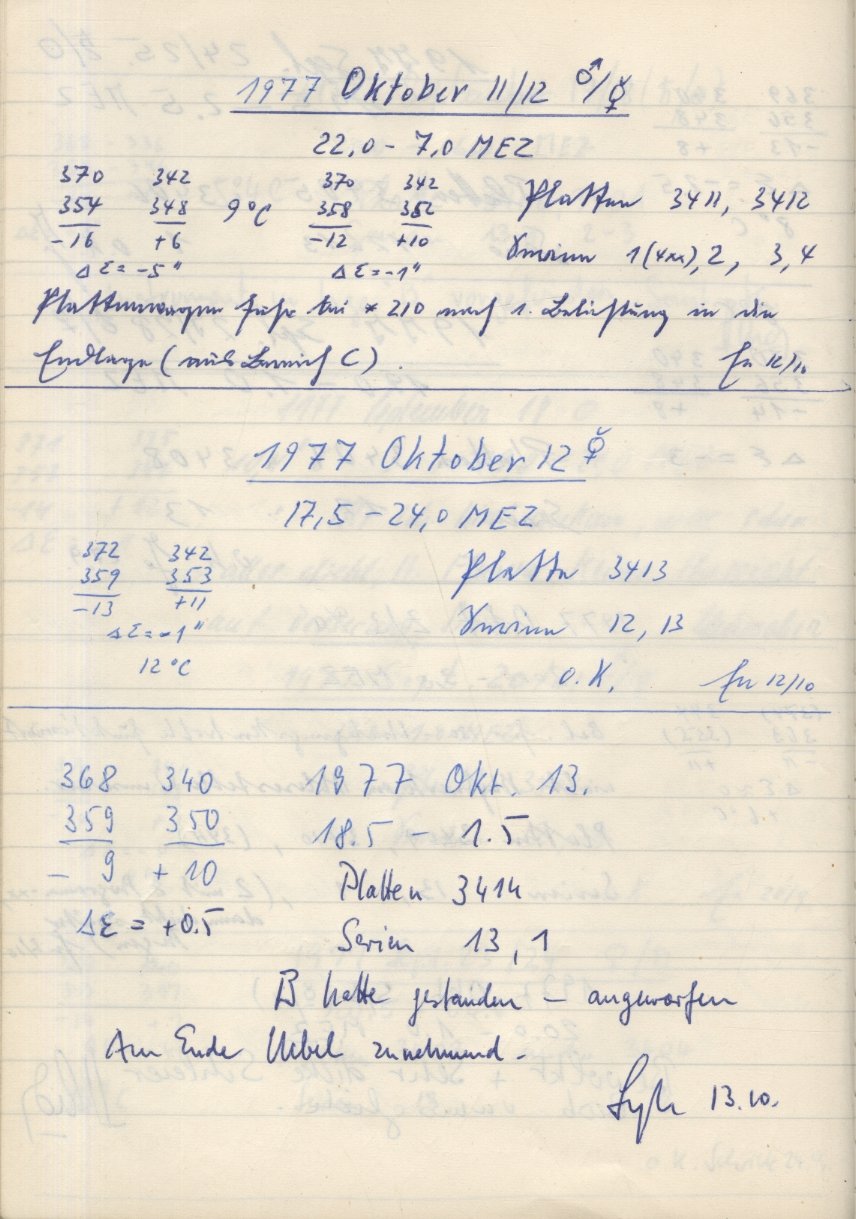 1977 Oktober 11/12 ♂/☿
22,0 - 7,0 MEZ
370 342 370 342
354 348 9°C 358 352
-16 +6 -12 +10
Δε = -5" Δε = -1"
Platten 3411, 3412
Serien 1(4xx), 2, 3, 4
Plattenwagen fuhr bei * 210 nach 1. Belichtung in die
Endlage (aus Bereich C).
12/10
1977 Oktober 12 ☿
17,5 - 24,0 MEZ
372 342
359 353
-13 +11
Δε = -1"
12°C
Platte 3413
Serien 12, 13
o.K. 12/10
368 340 1977 Okt. 13.
359 350 18.5 - 1.5
- 9 + 10
Δε = +0.5
Platten 3414
Serien 13, 1
B hatte gestanden - angeworfen
Am Ende Nebel zunehmend -
13.10.